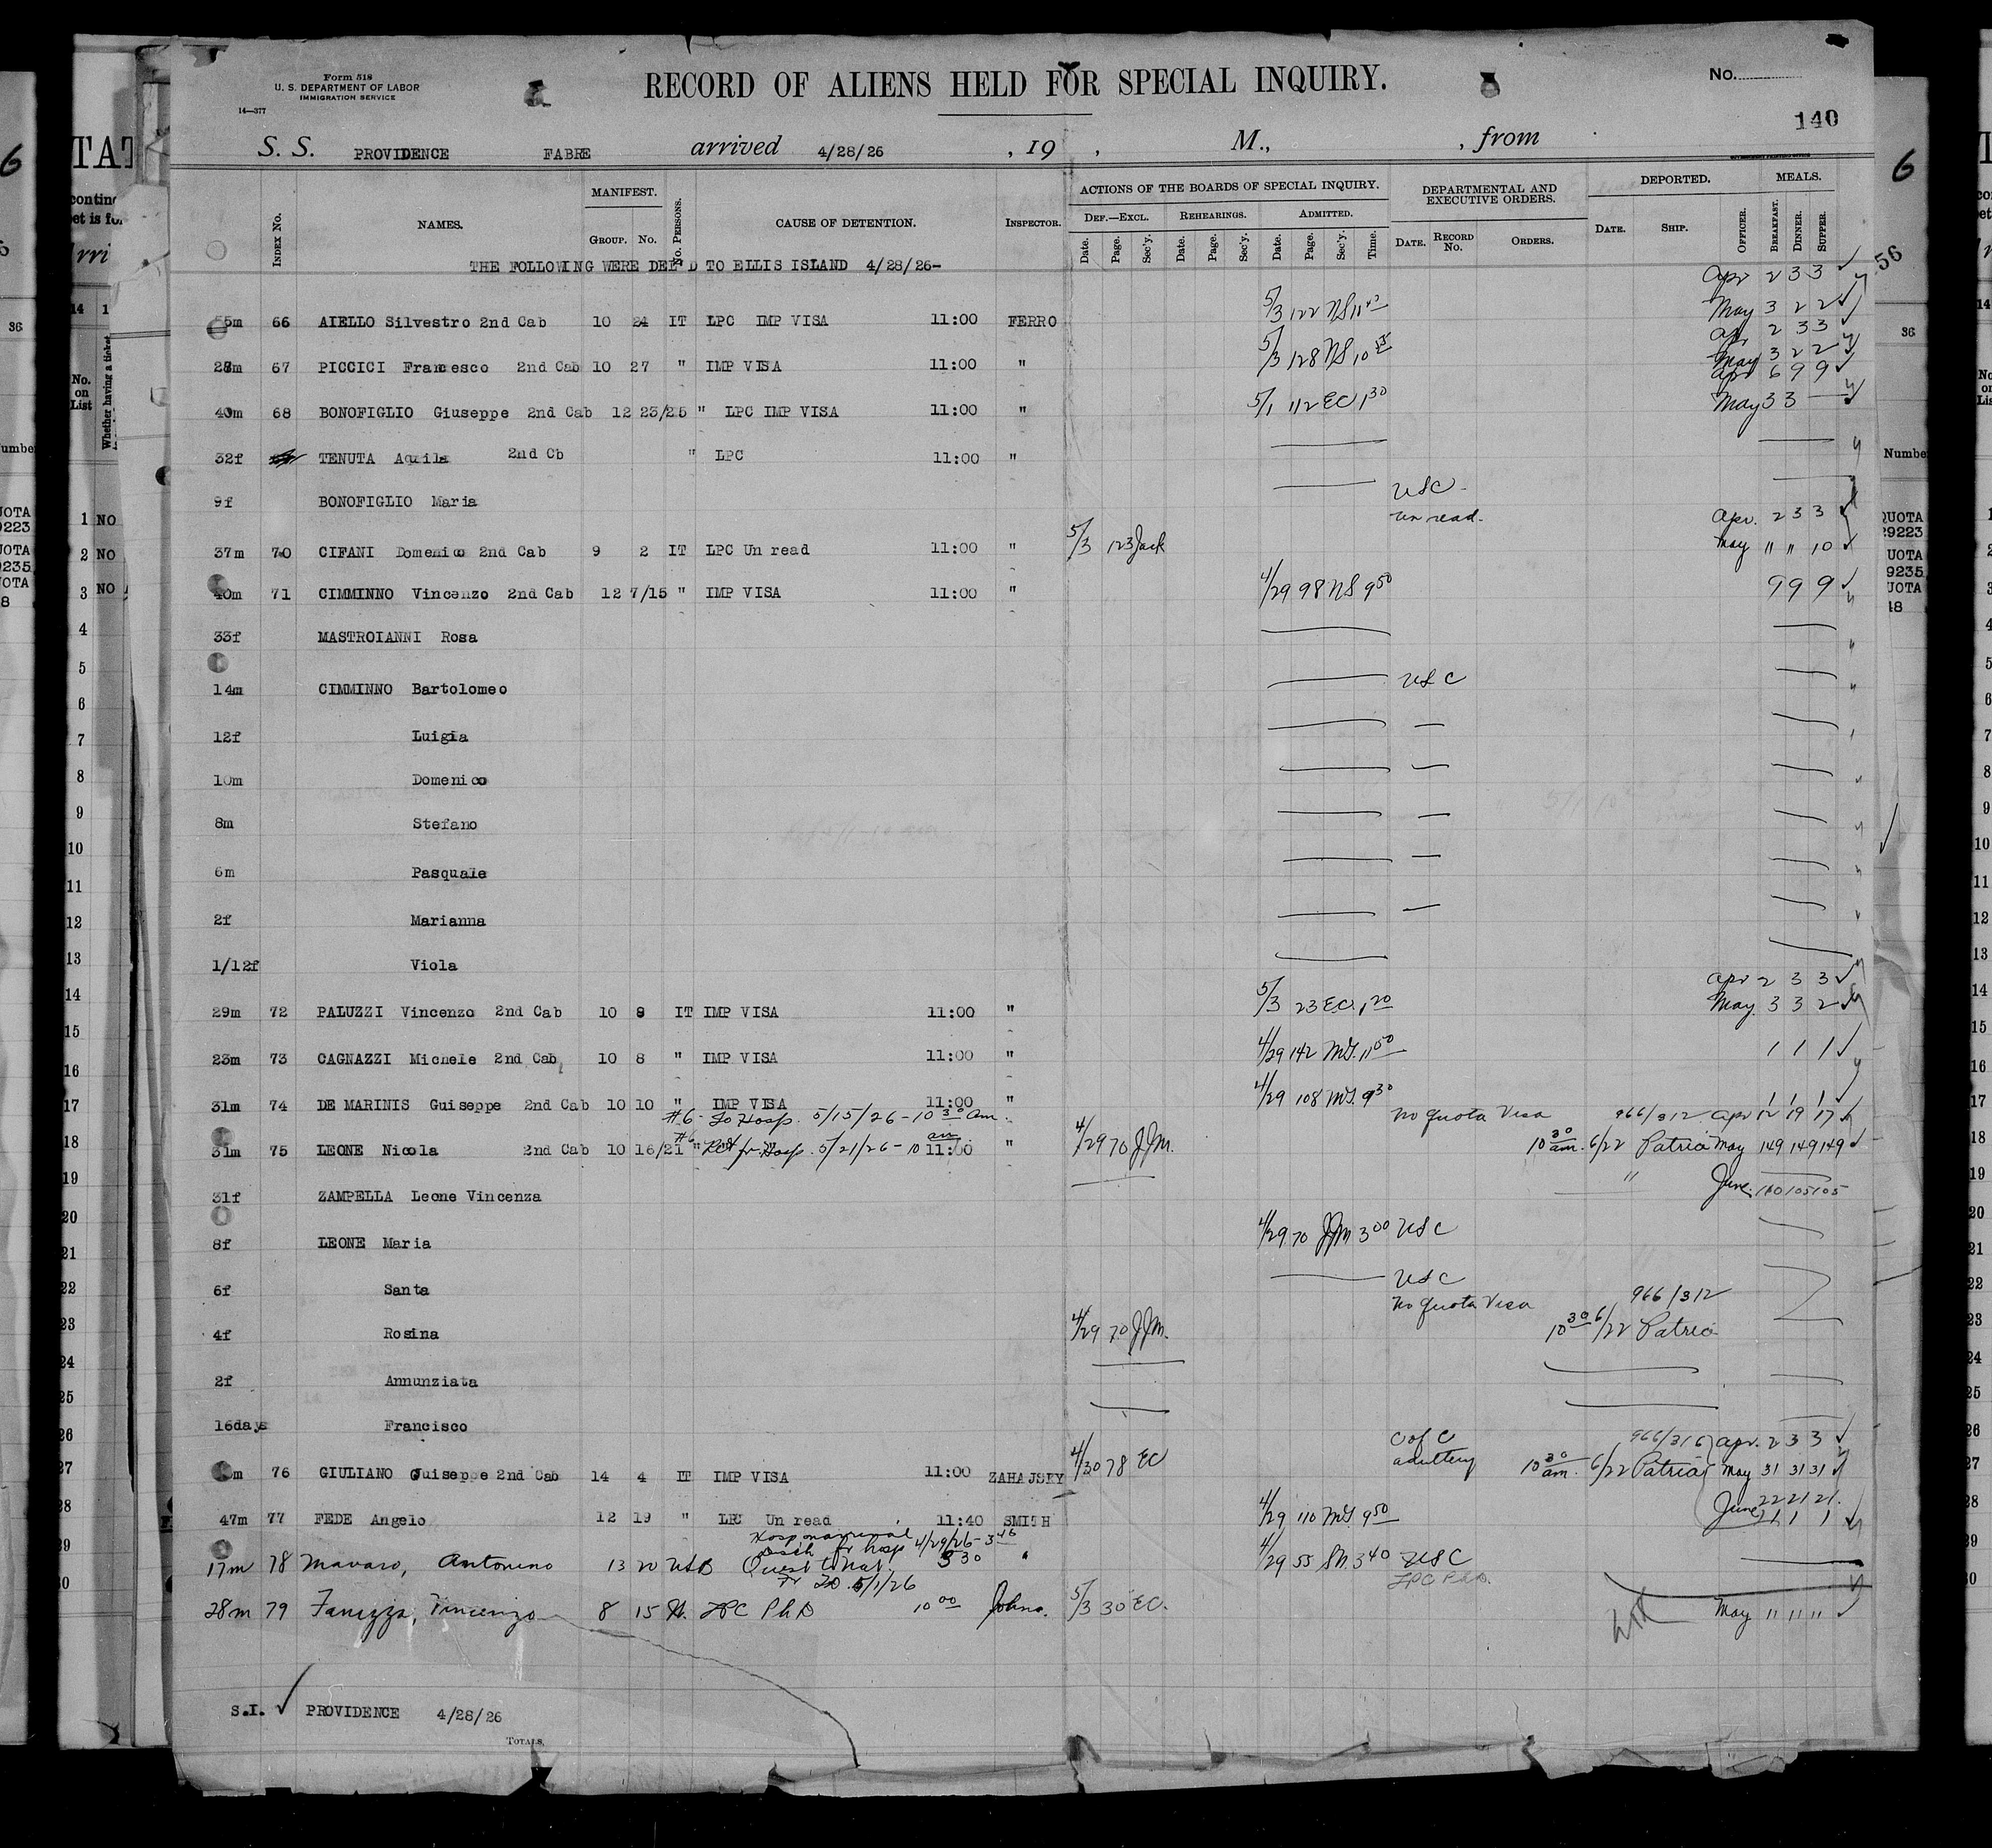 Form 518
U. S. DEPARTMENT OF LABOR
IMMIGRATION SERVICE
14—377
RECORD OF ALIENS HELD FOR SPECIAL INQUIRY.
No.
140
S. S. PROVIDENCE FABRE arrived 4/28/26 , 19 , M., , from
Index No. NAMES. MANIFEST. Group. No. No. Persons. CAUSE OF DETENTION. Inspector.
ACTIONS OF THE BOARDS OF SPECIAL INQUIRY. DEPARTMENTAL AND EXECUTIVE ORDERS. DEPORTED. MEALS.
Def.—Excl. Rehearings. Admitted.
Date. Page. Sec'y. Date. Page. Sec'y. Date. Page. Sec'y. Time. Date. Record No. Orders. Date. Ship. Officer. Breakfast. Dinner. Supper.
THE FOLLOWING WERE DEF'D TO ELLIS ISLAND 4/28/26-
Apr 2 3 3
55m 66 AIELLO Silvestro 2nd Cab 10 24 IT LPC IMP VISA 11:00 FERRO 5/3 122 NS May 3 2 2
Apr 2 3 3
28m 67 PICCICI Francesco 2nd Cab 10 27 " IMP VISA 11:00 " 5/3 128 NS May 3 2 2
Apr 6 9 9
40m 68 BONOFIGLIO Giuseppe 2nd Cab 12 23/25 " LPC IMP VISA 11:00 " 5/1 112 EC 1 30 May 3 3 —
32f TENUTA Aquila 2nd Cb " LPC 11:00 "
9f BONOFIGLIO Maria USC
un read. Apr. 2 3 3
37m 70 CIFANI Domenico 2nd Cab 9 2 IT LPC Un read 11:00 " 5/3 123 Jack May 11 11 10
40m 71 CIMMINNO Vincenzo 2nd Cab 12 7/15 " IMP VISA 11:00 " 4/29 98 NS 9 50 9 9 9
33f MASTROIANNI Rosa
14m CIMMINNO Bartolomeo USC
12f Luigia —
10m Domenico —
8m Stefano —
6m Pasquale —
2f Marianna —
1/12f Viola
Apr 2 3 3
29m 72 PALUZZI Vincenzo 2nd Cab 10 9 IT IMP VISA 11:00 " 5/3 23 EC 1 20 May 3 3 2
23m 73 CAGNAZZI Michele 2nd Cab 10 8 " IMP VISA 11:00 " 4/29 142 11 50 1 1 1
31m 74 DE MARINIS Guiseppe 2nd Cab 10 10 " IMP VISA 11:00 " 4/29 108 9 30 1 1 1
#6 - To Hosp. 5/15/26 - 10 30 am. No quota Visa 966/312 Apr 12 19 17
31m 75 LEONE Nicola 2nd Cab 10 16/21 " #6 fr. Hosp. 5/21/26 - 10 am 11:00 " 4/29 70 JJM. 10 30 am. 6/22 Patria May 149 149 149
31f ZAMPELLA Leone Vincenza " June 105 105
8f LEONE Maria 4/29 70 JJM 3 00 USC
6f Santa USC
No quota Visa 966/312
4f Rosina 4/29 70 JJM. 10 30 6/22 Patria
2f Annunziata
16days Francisco
C of C 966/316 Apr. 2 3 3
m 76 GIULIANO Guiseppe 2nd Cab 14 4 IT IMP VISA 11:00 ZAHAJSKY 4/30 78 EC adultery 10 30 am. 6/22 Patria May 31 31 31
June 22 21 21
47m 77 FEDE Angelo 12 19 " LPC Un read 11:40 SMITH 4/29 110 9 50 1 1 1
fr hosp 4/29/26 -
17m 78 Mavaro, Antonino 13 20 USB 3 30 " 4/29 55 3 40 USC
5/1/26 LPC
28m 79 Fanizza, Vincenzo 8 15 It. LPC Ph D 10 00 Johns. 5/3 30 EC. May 11 11 11
S.I. ✓ PROVIDENCE 4/28/26
Totals,